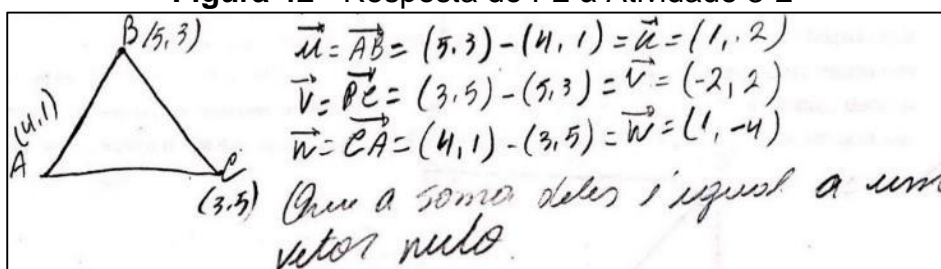 Figura 42 - Resposta de P2 à Atividade 3-2
B(5,3)
(4,1)
A
C
(3,5)
u⃗ = AB⃗ = (5,3) - (4,1) = u⃗ = (1,2)
v⃗ = BC⃗ = (3,5) - (5,3) = v⃗ = (-2,2)
w⃗ = CA⃗ = (4,1) - (3,5) = w⃗ = (1,-4)
Que a soma deles é igual a um
vetor nulo.